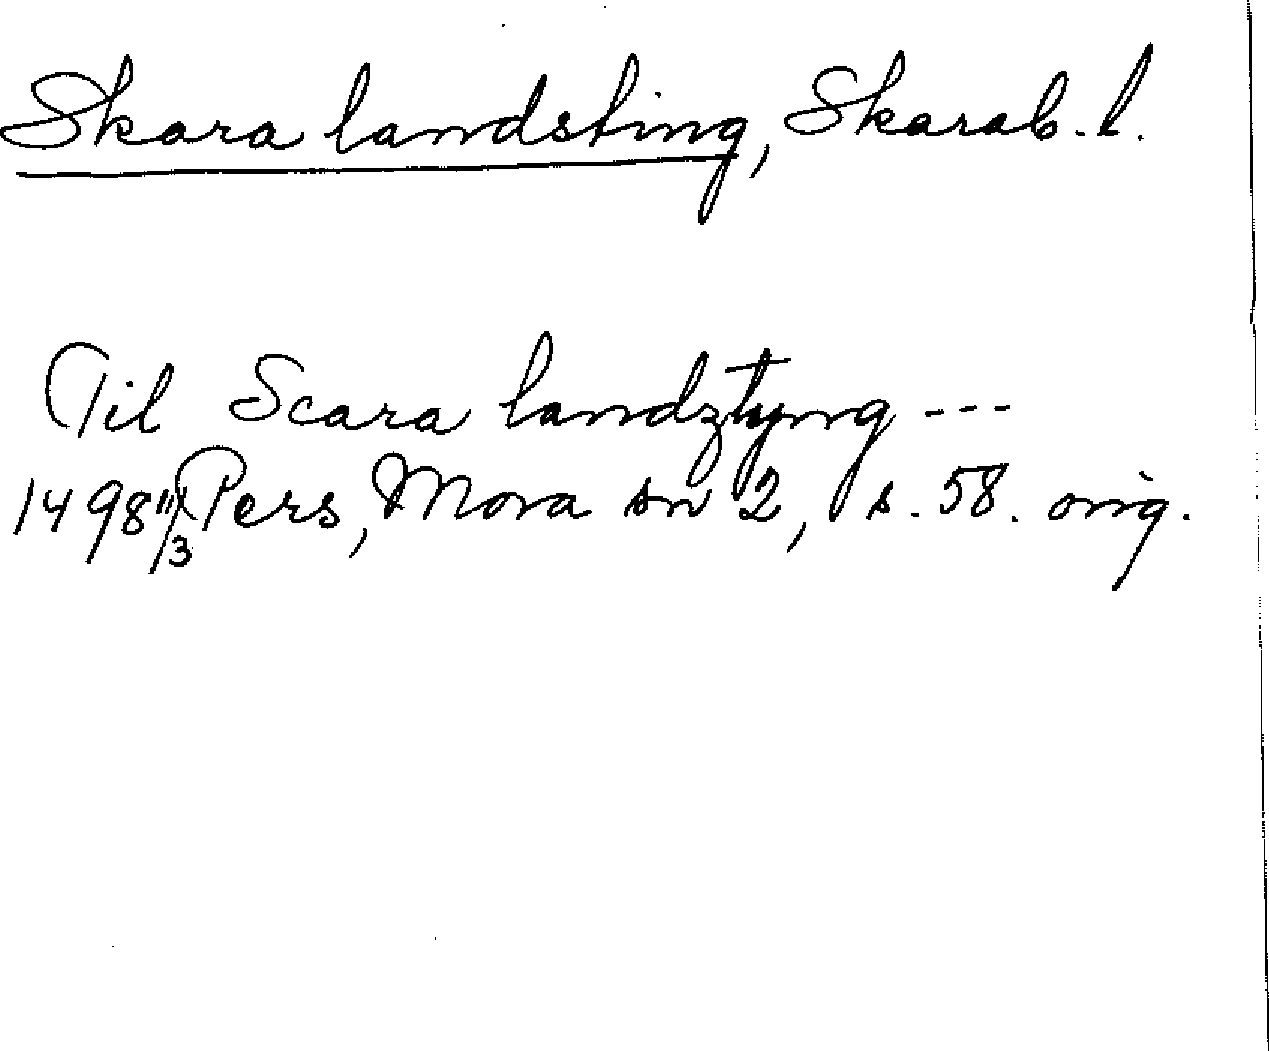 Skara landsting, Skarab. l.
Til Scara landztyng ---
1498 11/3 Pers, Mora sn 2, s. 58. orig.